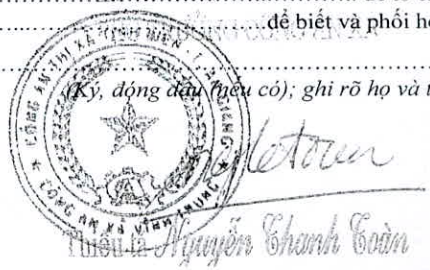 để biết và phối h
(Ký, đóng dấu (nếu có); ghi rõ họ và t
CÔNG AN THỊ XÃ TỊNH BIÊN - T. AN GIANG
CÔNG AN XÃ VĨNH TRUNG
Thiếu tá Nguyễn Thanh Toàn